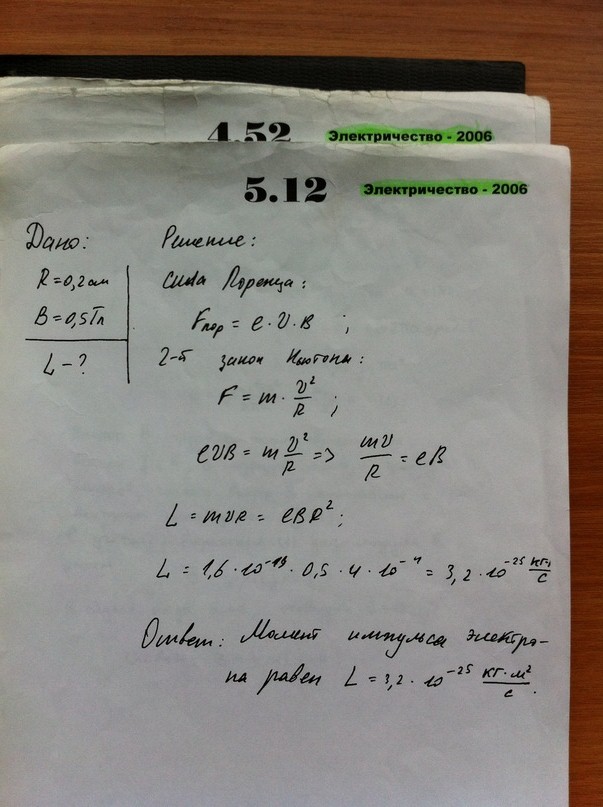 4.52 Электричество - 2006
5.12 Электричество - 2006
Дано: Решение:
R = 0,2 см Сила Лоренца:
B = 0,5 Тл Fлор = e · V · B ;
L - ? 2-й закон Ньютона:
F = m · V²/R ;
eVB = m V²/R => mV/R = eB
L = mVR = eBR² ;
L = 1,6 · 10⁻¹⁹ · 0,5 · 4 · 10⁻⁴ = 3,2 · 10⁻²⁵ кг·/с
Ответ: Момент импульса электро-
на равен L = 3,2 · 10⁻²⁵ кг·м²/с.